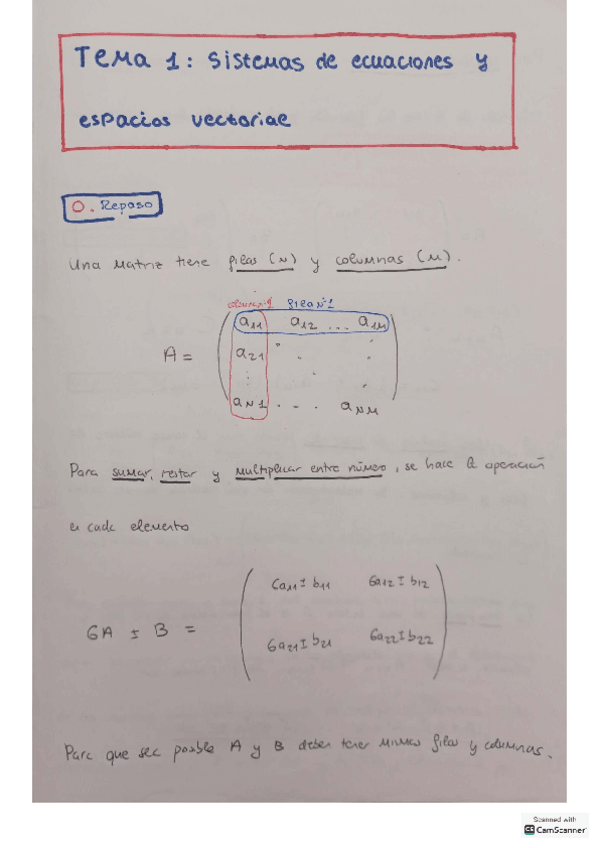 Tema 1: Sistemas de ecuaciones y
espacios vectoriae
0. Repaso
Una matriz tiene filas (N) y columnas (M).
columna 1 fila nº1
a11 a12 ... a1M
A = a21 . . .
: . .
aN1 . - . . aNM
Para sumar, restar y multiplicar entre número, se hace la operación
en cada elemento
6a11 ± b11 6a12 ± b12
6A ± B =
6a21 ± b21 6a22 ± b22
Para que sea posible A y B deben tener mismas filas y columnas.
Scanned with
CS CamScanner